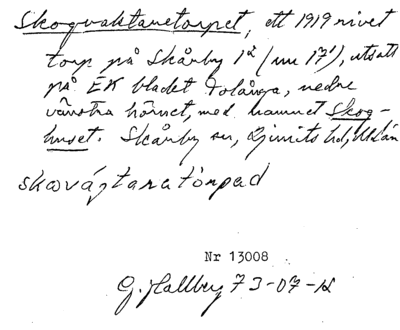 Skogvaktaretorpet, ett 1919 rivet
torp på Skårby 1² (nu 17¹), utsatt
på EK bladet Tolånga, nedre
vänstra hörnet, med namnet Skog-
huset. Skårby sn, Ljunits hd, M län
skωvágtaratòrpad
Nr 13008
G. Hallberg 73-07-12